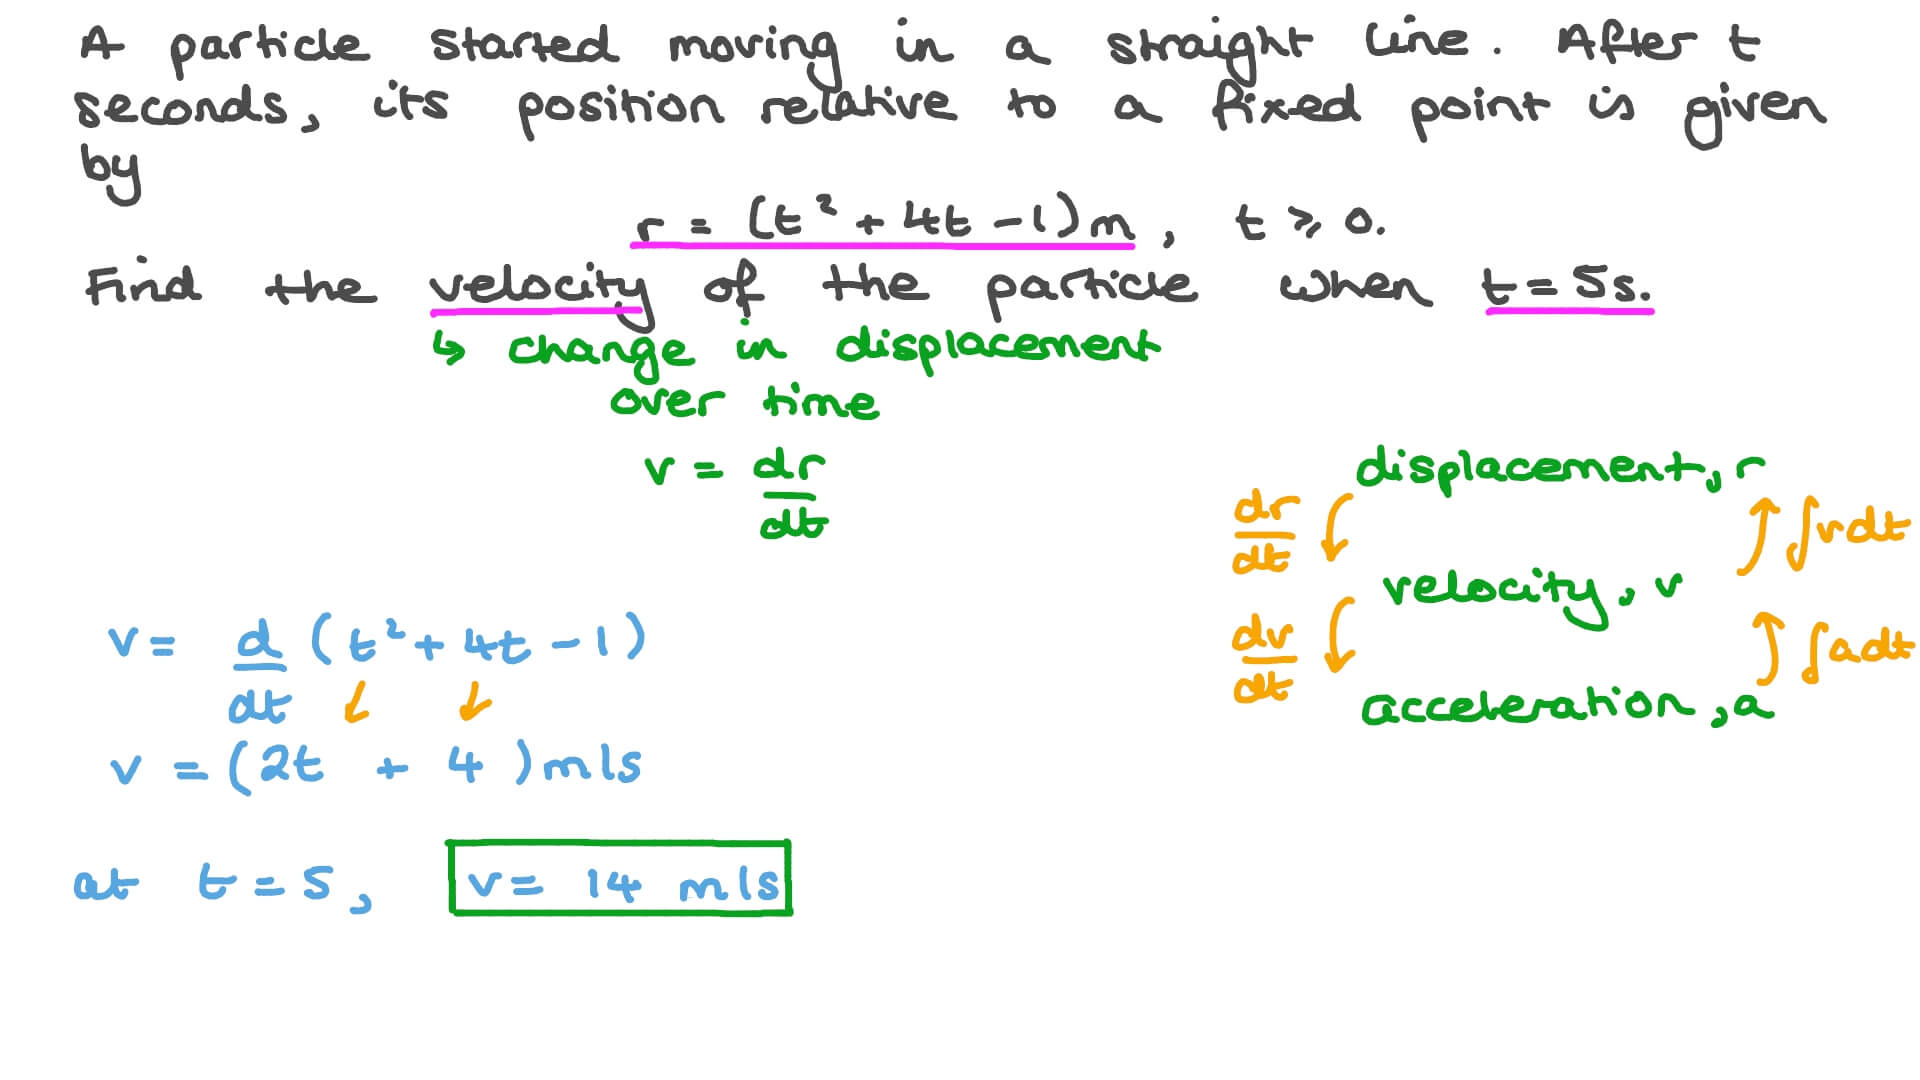 A particle started moving in a straight line. After t
seconds, its position relative to a fixed point is given
by
r = (t² + 4t - 1)m, t ⩾ 0.
Find the velocity of the particle when t = 5s.
↳ change in displacement
over time
v = dr/dt
displacement, r
dr/dt
∫vdt
velocity, v
dv/dt
∫adt
acceleration, a
v = d/dt (t² + 4t - 1)
v = (2t + 4) m/s
at t = 5, v = 14 m/s